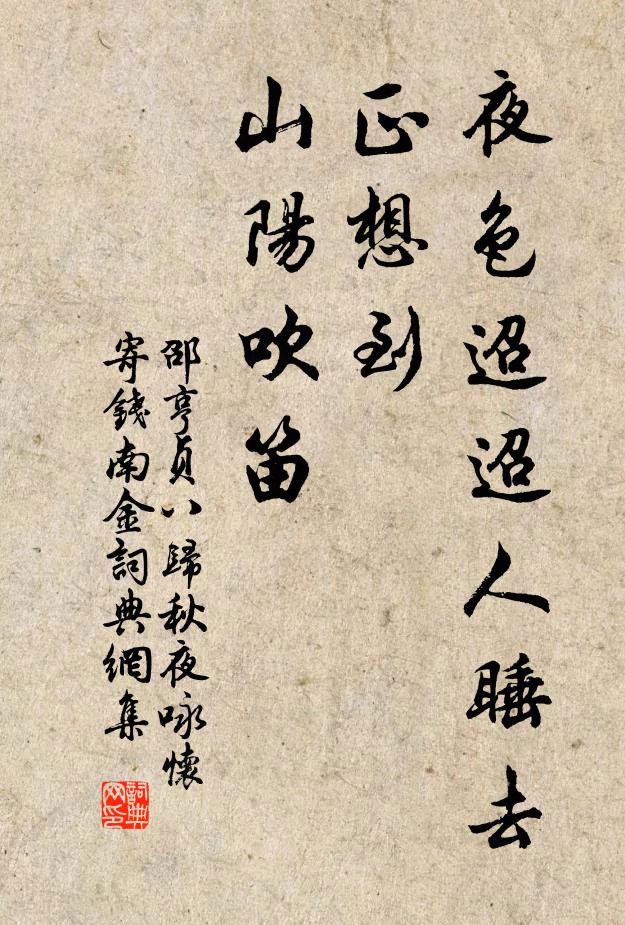 夜色迢迢人睡去
正想到
山陽吹笛
邵亨貞八歸秋夜咏懷
寄錢南金詞典網集
詞典
网印